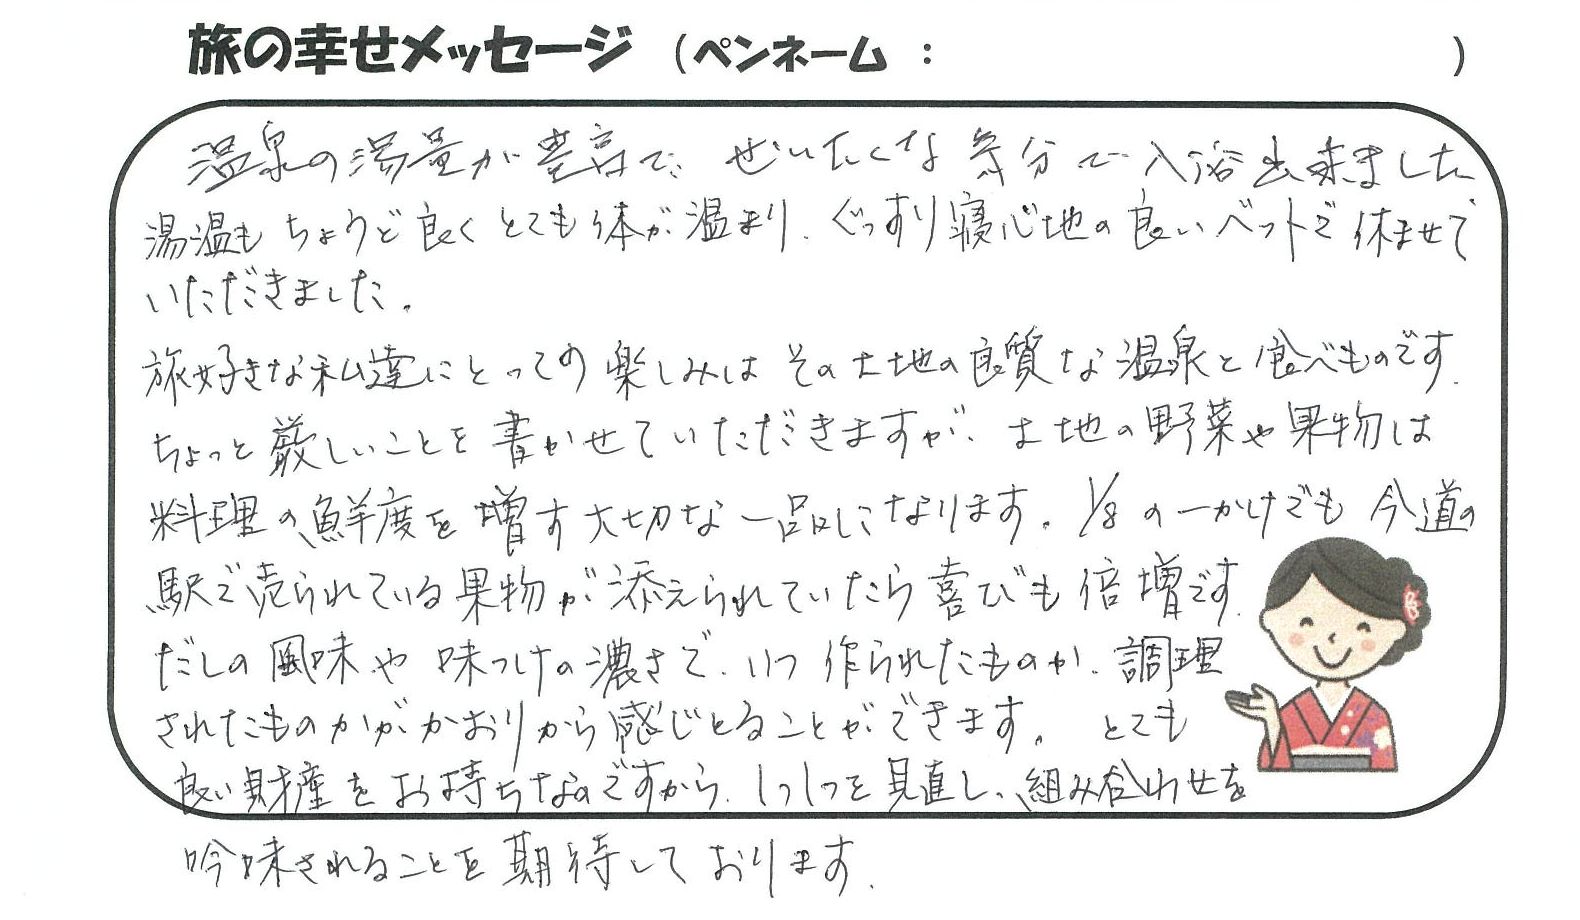 旅の幸せメッセージ （ペンネーム：　　　　　　）
温泉の湯量が豊富で、ぜいたくな気分で入浴出来ました
湯温もちょうど良くとても体が温まり、ぐっすり寝心地の良いベットで休ませて
いただきました。
旅好きな私達にとっての楽しみはその土地の良質な温泉と食べものです。
ちょっと厳しいことを書かせていただきますが、土地の野菜や果物は
料理の鮮度を増す大切な一品になります。1/8の一かけでも今道の
駅で売られている果物が添えられていたら喜びも倍増です。
だしの風味や味つけの濃さで、いつ作られたものか、調理
されたものかがかおりから感じとることができます。とても
良い財産をお持ちなのですから、1つ1つを見直し、組み合わせを
吟味されることを期待しております。